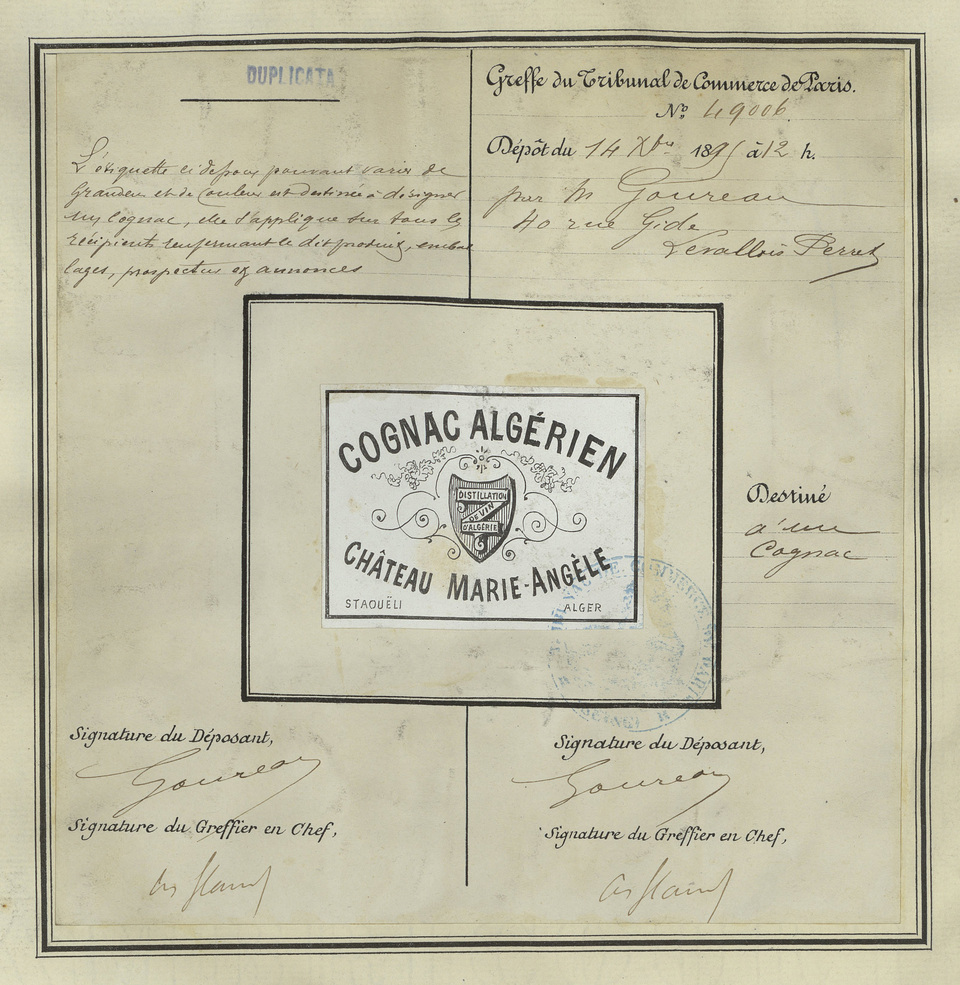 DUPLICATA
L'étiquette ci dessous pouvant varier de
Grandeur et de Couleur est destinée à désigner
un Cognac, elle s'applique sur tous les
récipients renfermant le dit produit, embal
lages, prospectus et annonces
Greffe du Tribunal de Commerce de Paris.
No. 49006.
Dépôt du 14 Xbre 1895 à 12 h.
par M Goureau
40 rue Gide
Levallois Perret
COGNAC ALGÉRIEN
DISTILLATION
DE VIN
D'ALGÉRIE
CHÂTEAU MARIE-ANGÈLE
STAOUËLI ALGER
Destiné
à un
Cognac
Signature du Déposant,
Goureau
Signature du Greffier en Chef,
Signature du Déposant,
Goureau
Signature du Greffier en Chef,